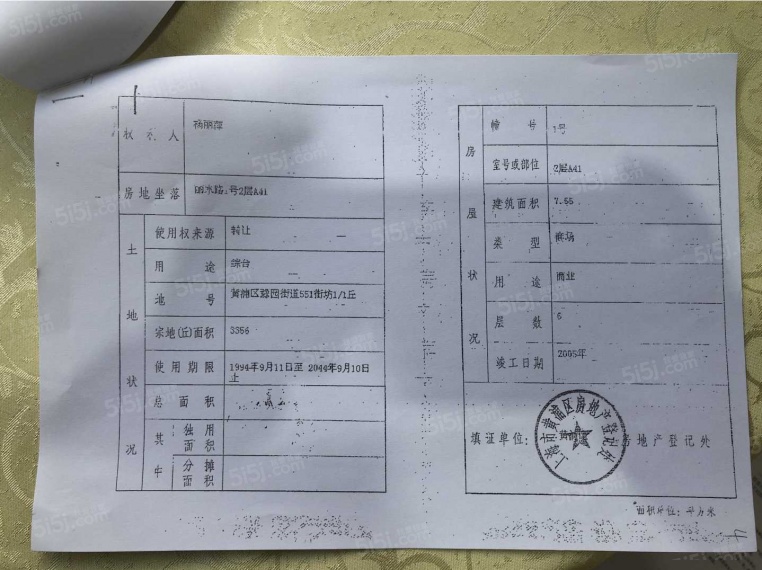 权利人
杨丽萍
房地坐落
丽水路1号2层A41
土地状况
使用权来源
转让
用途
综合
地号
黄浦区豫园街道551街坊1/1丘
宗地(丘)面积
3356
使用期限
1994年9月11日至 2044年9月10日
止
总面积
其中
独用
面积
分摊
面积
房屋状况
幢号
1号
室号或部位
2层A41
建筑面积
7.55
类型
商场
用途
商业
层数
6
竣工日期
2005年
填证单位:
房地产登记处
上海市黄浦区房地产登记处
面积单位:平方米
515j.com